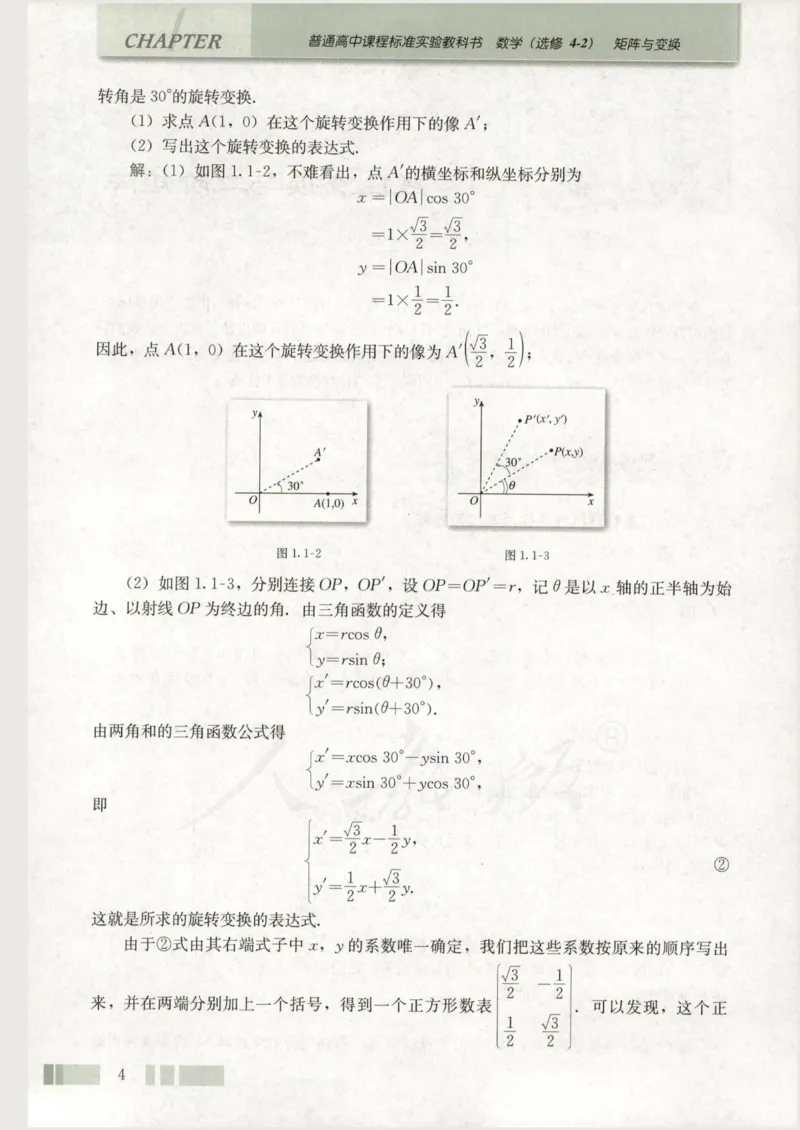 CHAPTER 1 普通高中课程标准实验教科书 数学（选修 4-2） 矩阵与变换
转角是 30°的旋转变换.
(1) 求点 A(1, 0) 在这个旋转变换作用下的像 A′;
(2) 写出这个旋转变换的表达式.
解: (1) 如图 1.1-2, 不难看出, 点 A′的横坐标和纵坐标分别为
x=|OA|cos 30°
=1×√3/2=√3/2,
y=|OA|sin 30°
=1×1/2=1/2.
因此, 点 A(1, 0) 在这个旋转变换作用下的像为 A′(√3/2, 1/2);
y
A′
30°
O
A(1,0)
x
y
P′(x′, y′)
P(x,y)
30°
θ
O
x
图 1.1-2
图 1.1-3
(2) 如图 1.1-3, 分别连接 OP, OP′, 设 OP=OP′=r, 记 θ 是以 x 轴的正半轴为始
边、以射线 OP 为终边的角. 由三角函数的定义得
{x=rcos θ,
y=rsin θ;
{x′=rcos(θ+30°),
y′=rsin(θ+30°).
由两角和的三角函数公式得
{x′=xcos 30°−ysin 30°,
y′=xsin 30°+ycos 30°,
即
{x′=√3/2x−1/2y,
②
y′=1/2x+√3/2y.
这就是所求的旋转变换的表达式.
由于②式由其右端式子中 x, y 的系数唯一确定, 我们把这些系数按原来的顺序写出
来, 并在两端分别加上一个括号, 得到一个正方形数表 [√3/2 −1/2; 1/2 √3/2]. 可以发现, 这个正
人教版®
4